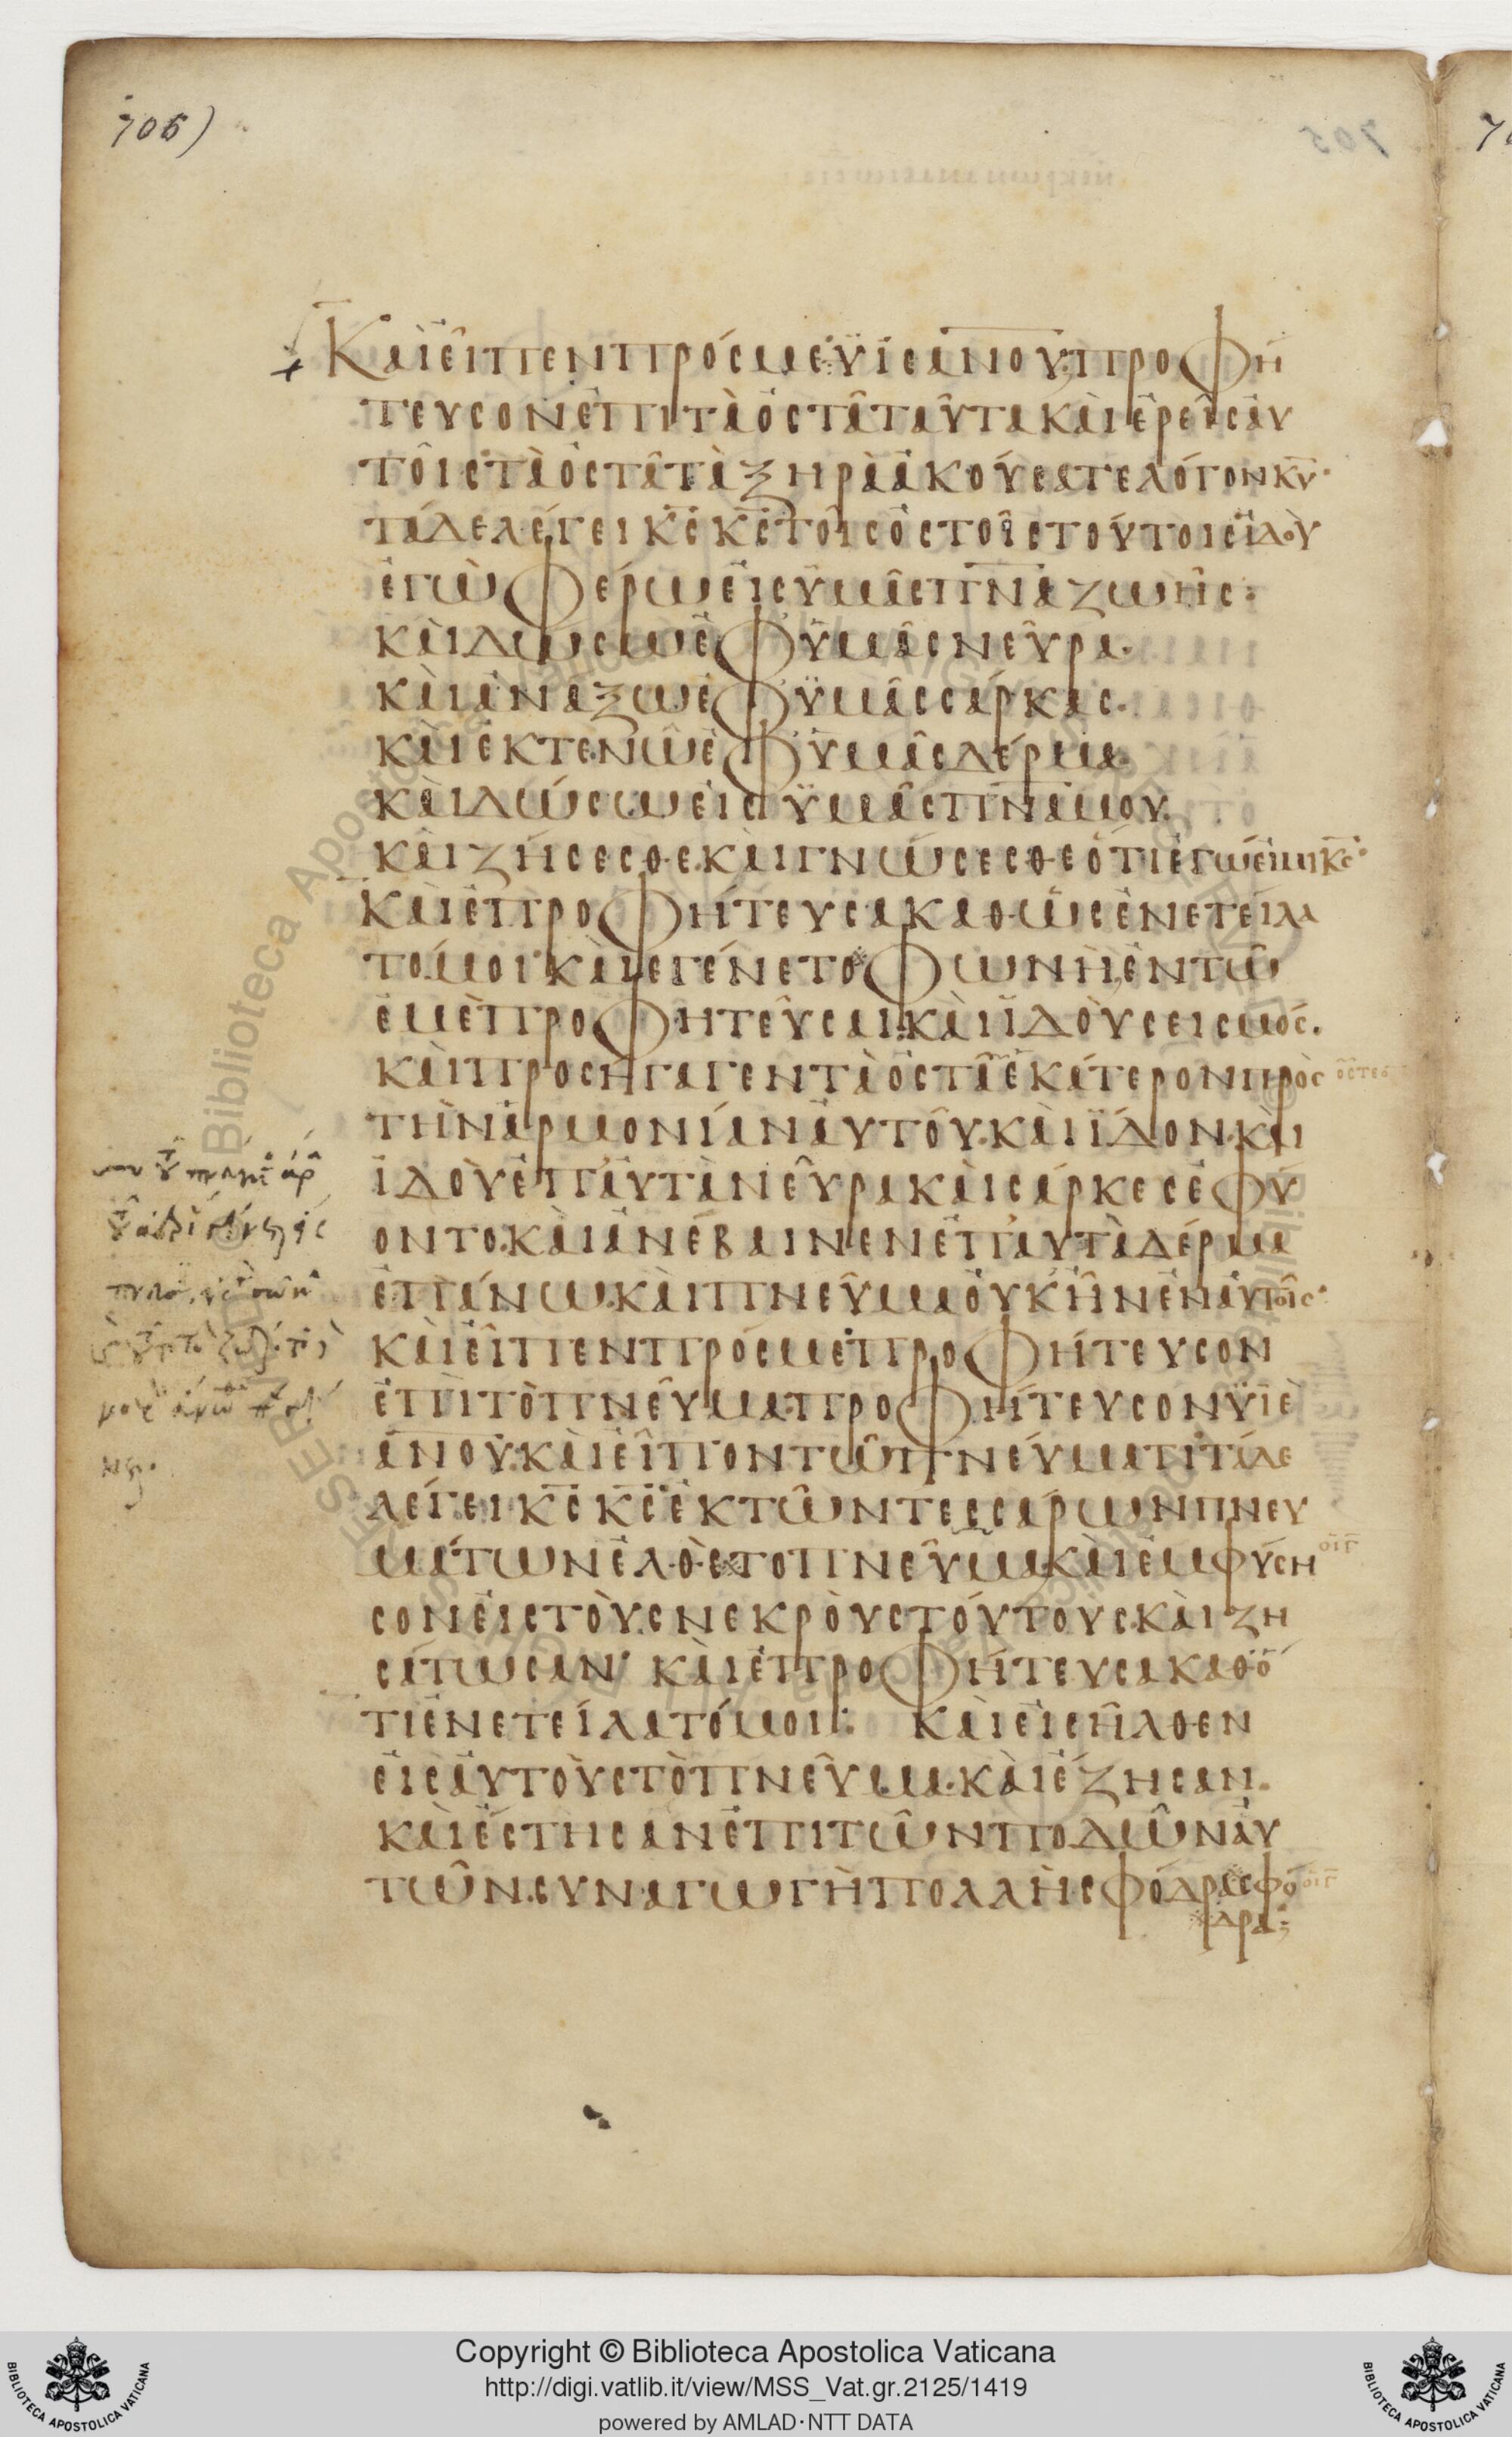 706)
Καὶ εἶπεν πρόσ με υἱὲ ἀνου προφή
τευσον ἐπὶ τὰ ὀστᾶ ταῦτα καὶ ἐρεῖσ αὐ
τοῖσ τὰ ὀστᾶ τὰ ξηρὰ ἀκούσατε λόγον κυ·
τάδε λέγει κσ κσ τοῖσ ὀστοῖσ τούτοισ ἰδοὺ
ἐγὼ φέρω εἰσ ὑμᾶσ πνα ζωῆσ·
καὶ δώσω ἐφ ὑμᾶσ νεῦρα·
καὶ ἀναξω ἐφ ὑμᾶσ σάρκασ·
καὶ ἐκτενῶ ἐφ ὑμᾶσ δέρμα·
καὶ δώσω εἰσ ὑμᾶσ πνα μου·
καὶ ζήσεσθε· καὶ γνώσεσθε ὅτι ἐγώ εἰμι κσ·
καὶ ἐπροφήτευσα καθὼσ ἐνετείλα
το μοι· καὶ ἐγένετο φωνὴ ἐν τῶ
ἐμὲ προφητεῦσαι· καὶ ἰδοὺ σεισμόσ·
καὶ προσήγαγεν τὰ ὀστᾶ ἑκάτερον πρὸσ
τὴν ἁρμονίαν αὐτοῦ· καὶ ἴδον· καὶ
ἰδοὺ ἐπ' αὐτὰ νεῦρα καὶ σάρκεσ ἐφύ
οντο· καὶ ἀνέβαινεν ἐπ' αὐτὰ δέρμα
ἐπάνω· καὶ πνεῦμα οὐκ ἦν ἐν αὐτοῖσ·
καὶ εἶπεν πρόσ με προφήτευσον
ἐπὶ τὸ πνεῦμα· προφήτευσον υἱὲ
ἀνου· καὶ εἶπον τῶ πνεύματι τάδε
λέγει κσ κσ ἐκ τῶν τεσσάρων πνευ
μάτων ἐλθὲ το πνεῦμα· καὶ ἐμφύση
σον εἰσ τοὺσ νεκροὺσ τούτουσ· καὶ ζη
σάτωσαν· καὶ ἐπροφήτευσα καθό
τι ἐνετείλατό μοι: καὶ εἰσῆλθεν
εἰσ αὐτοὺσ τὸ πνεῦμα· καὶ ἔζησαν·
καὶ ἔστησαν ἐπὶ τῶν ποδῶν αὐ
τῶν· συναγωγὴ πολλὴ σφόδρα σφό
δρα:
Copyright © Biblioteca Apostolica Vaticana
http://digi.vatlib.it/view/MSS_Vat.gr.2125/1419
powered by AMLAD·NTT DATA
BIBLIOTECA APOSTOLICA VATICANA
BIBLIOTECA APOSTOLICA VATICANA